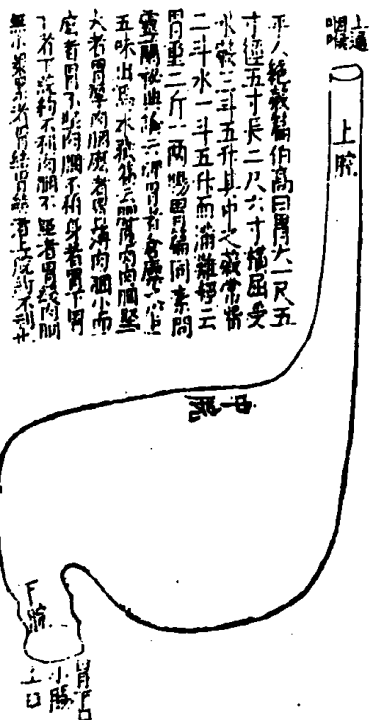 上通
咽喉
上脘
平人絕穀篇伯高曰胃大一尺五
寸徑五寸長二尺六寸橫屈受
水穀三斗五升其中之穀常留
二斗水一斗五升而滿難經云
胃重二斤一兩腸胃篇同素問
靈蘭秘典論云脾胃者倉廩之官
五味出焉
肉䐃堅
大者胃厚肉䐃麼者胃薄肉䐃小而
麼者胃不堅肉䐃不稱身者胃下胃
下者下脘約不利肉䐃不堅者胃緩肉䐃
無小裏累者胃急
中脘
下脘
胃下口
小腸
上口